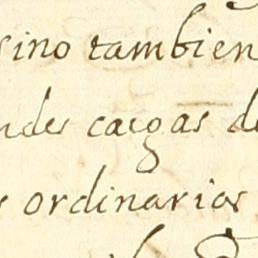 sino tambien
ndes cargas de
s ordinarios